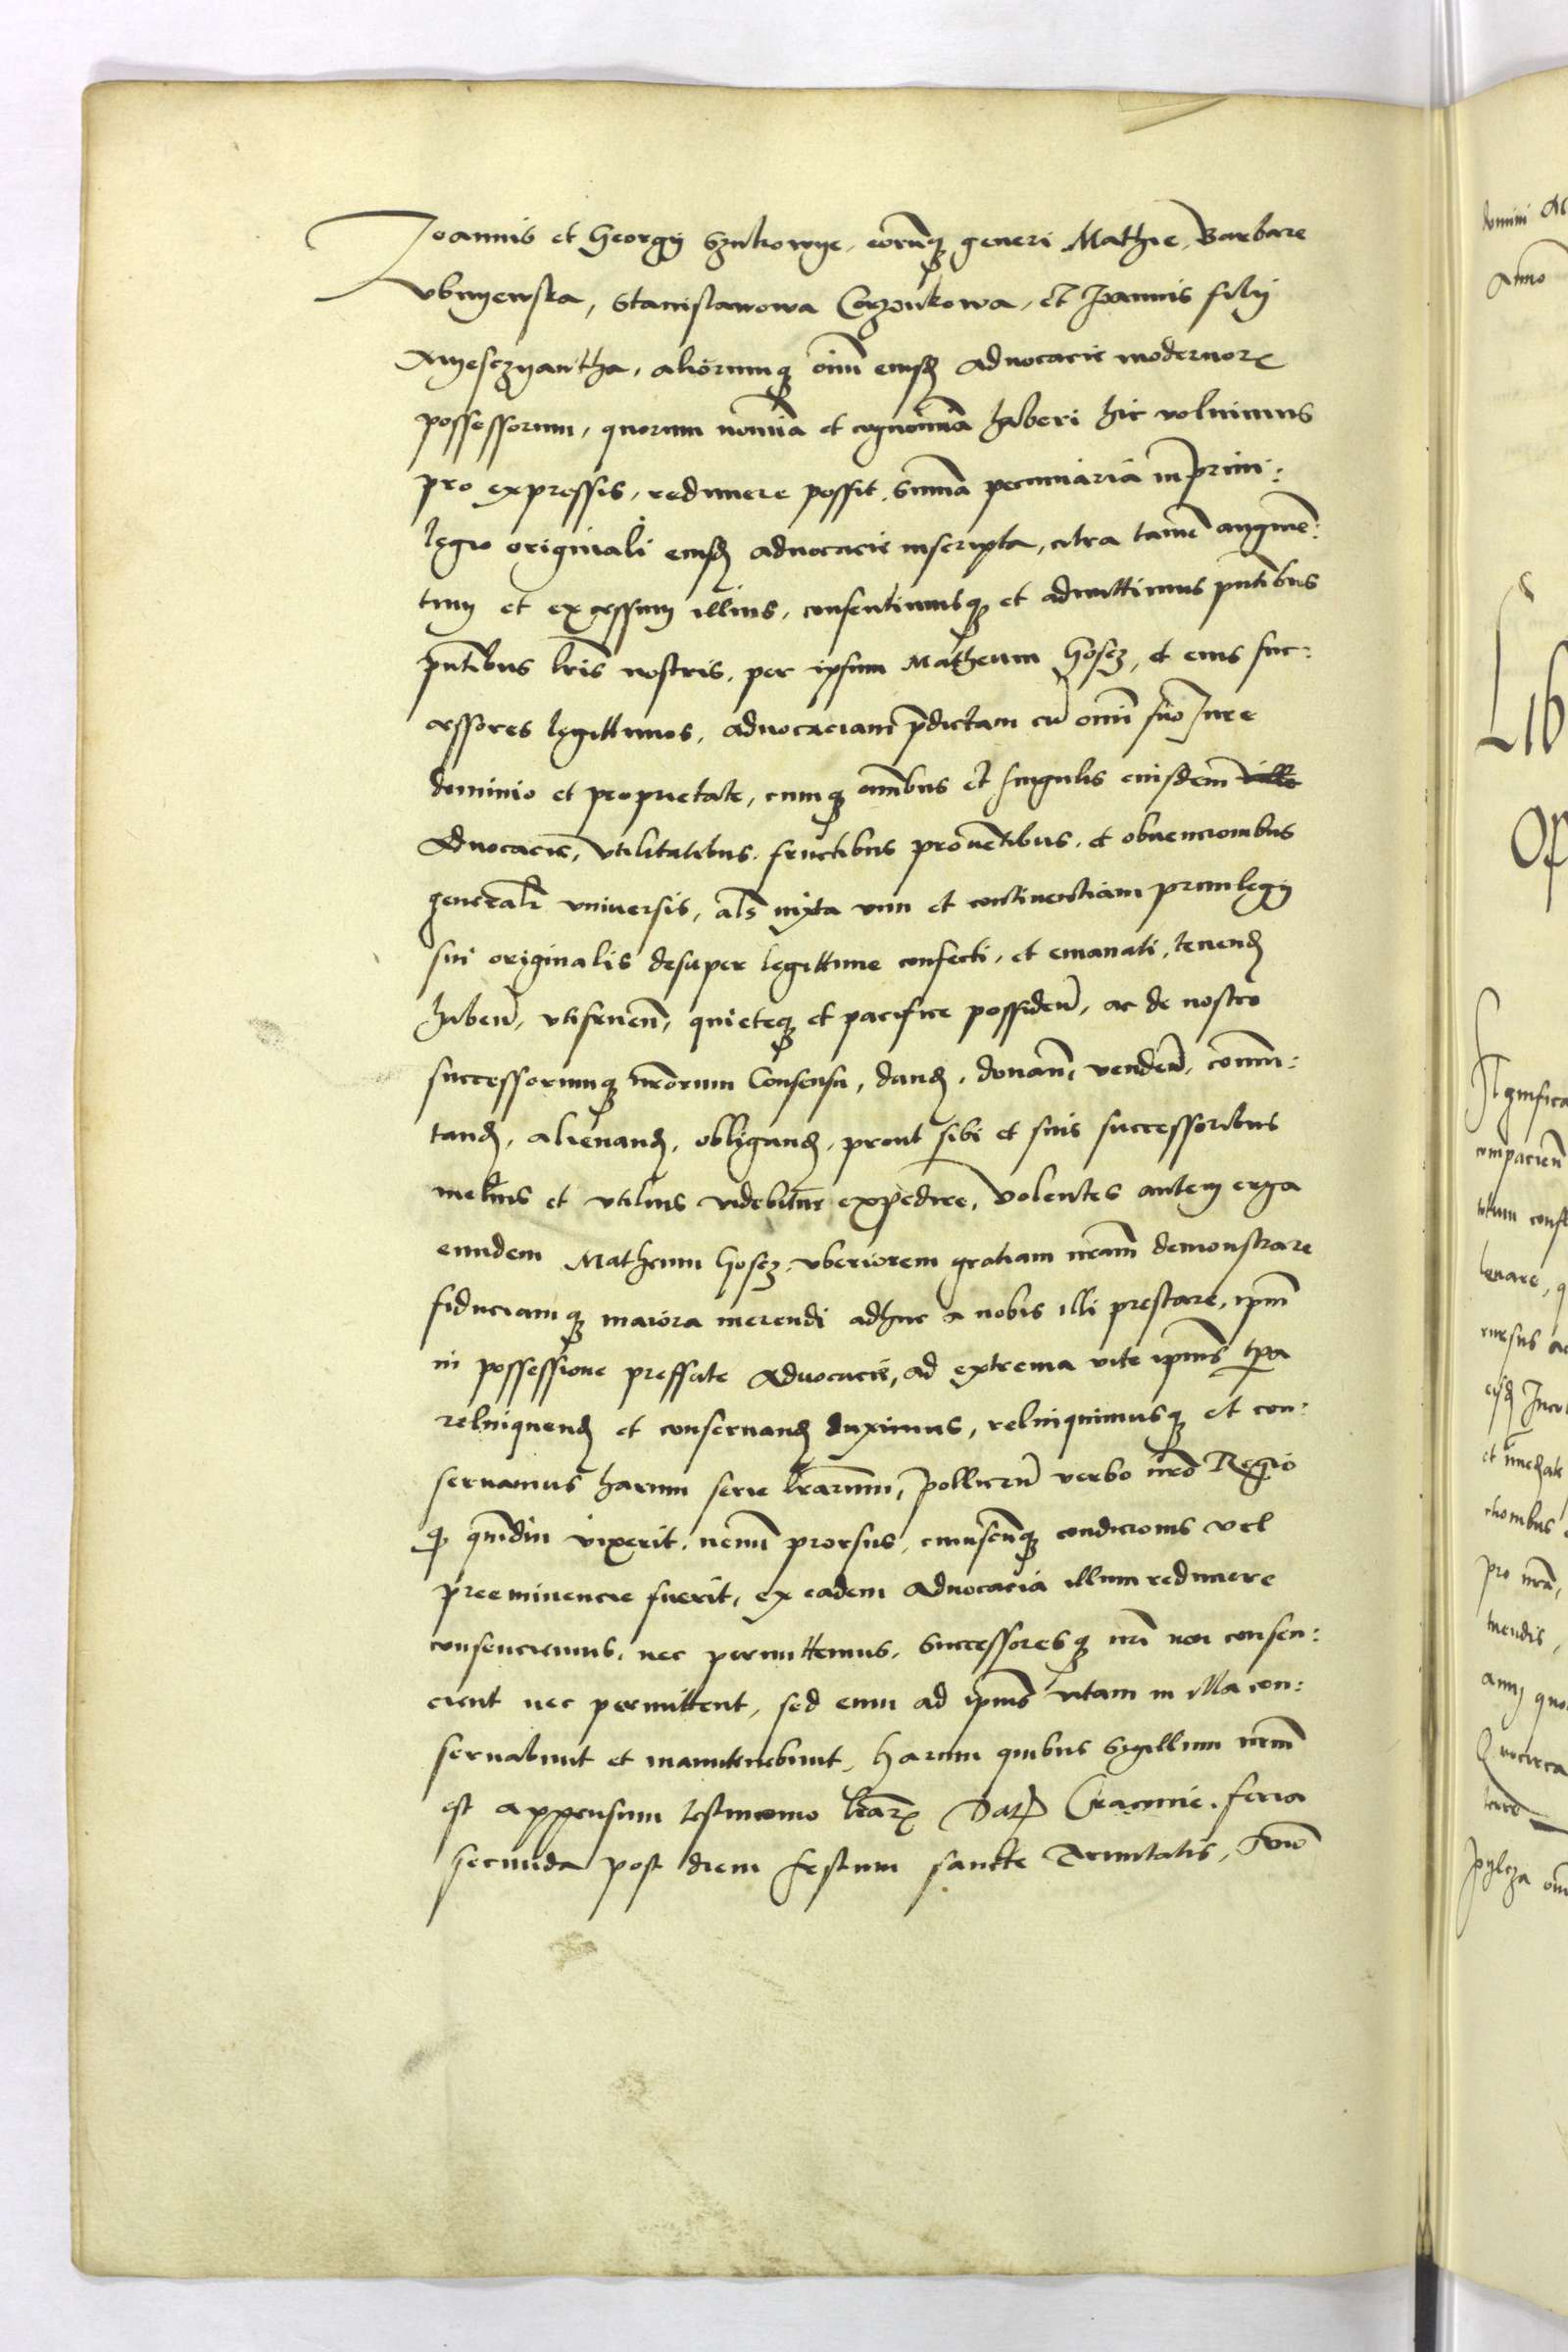 Joannis et Georgÿ Sculcowÿe, eorūq̨ generi Mathie, Barbare
Ubnÿewska, Stanislawowa Czozoukowa, et Joannis filÿ
Mÿesczÿantha, aliorumq̨ oīm eiusd̄ advocacie modernorꝝ
possessorum, quorum nomīa et cognomīa haberi hic volumus
pro expressis, redimere possit, sum̄a pecuniaria in privi:
legio originali eiusd̄ advocacie inscripta, citra tamē augmē:
tum et excessum illius, consentimusq̨ et admittimus pn̄tibus
pn̄tibus lr̄is nostris, per ipsum Matheum Hosz, et eius suc:
cessores legittimos, advocaciam p̄dictam cū om̄i suo Jure
dominio et proprietate, cumq̨ om̄ibus et singulis eiusdem ville
Advocacie, utilitatibus, fructibus proventibus, et obvencionibus
generalr̄ universis, als̄ iuxta vim et continentiam privilegÿ
sui originalis desuper legittime confecti, et emanati, tenend̄
haben̄, utifruen̄, quieteq̨ et pacifice possiden̄, ac de nostro
successorumq̨ nr̄orum Consensu, dand̄, donan̄, venden̄, com̄u:
tand̄, alienand̄, obligand̄, prout sibi et suis successoribus
melius et utilius videbitur expedire, Volentes autem erga
eundem Matheum Hosz, uberiorem gratiam nr̄am demonstrare
fiduciamq̨ maiora merendi adhuc a nobis illi prestare, ipm̄
in possessione preffate Advocacie, ad extrema vite ipius̄ tp̄a
relinquend̄ et conservand̄ duximus, relinquimusq̨ et con:
servamus harum serie lr̄arum, pollicen̄ verbo nr̄o Regio
q̨ qm̄diu vixerit, nemī prorsus, cuiuscūq̨ condicionis vel
preeminencie fuerit, ex eadem Advocacia illum redimere
consenciemus, nec permittemus, Successoresq̨ nr̄i non consen:
cient nec permittent, sed eum ad ipius̄ vitam in illa con:
servabunt et manutenebunt, Harum quibus Sigillum nr̄m
est appensum testimonio lr̄arꝝ Dat̄ Cracovie, feria
secunda post diem festum sancte Trinitatis, Año